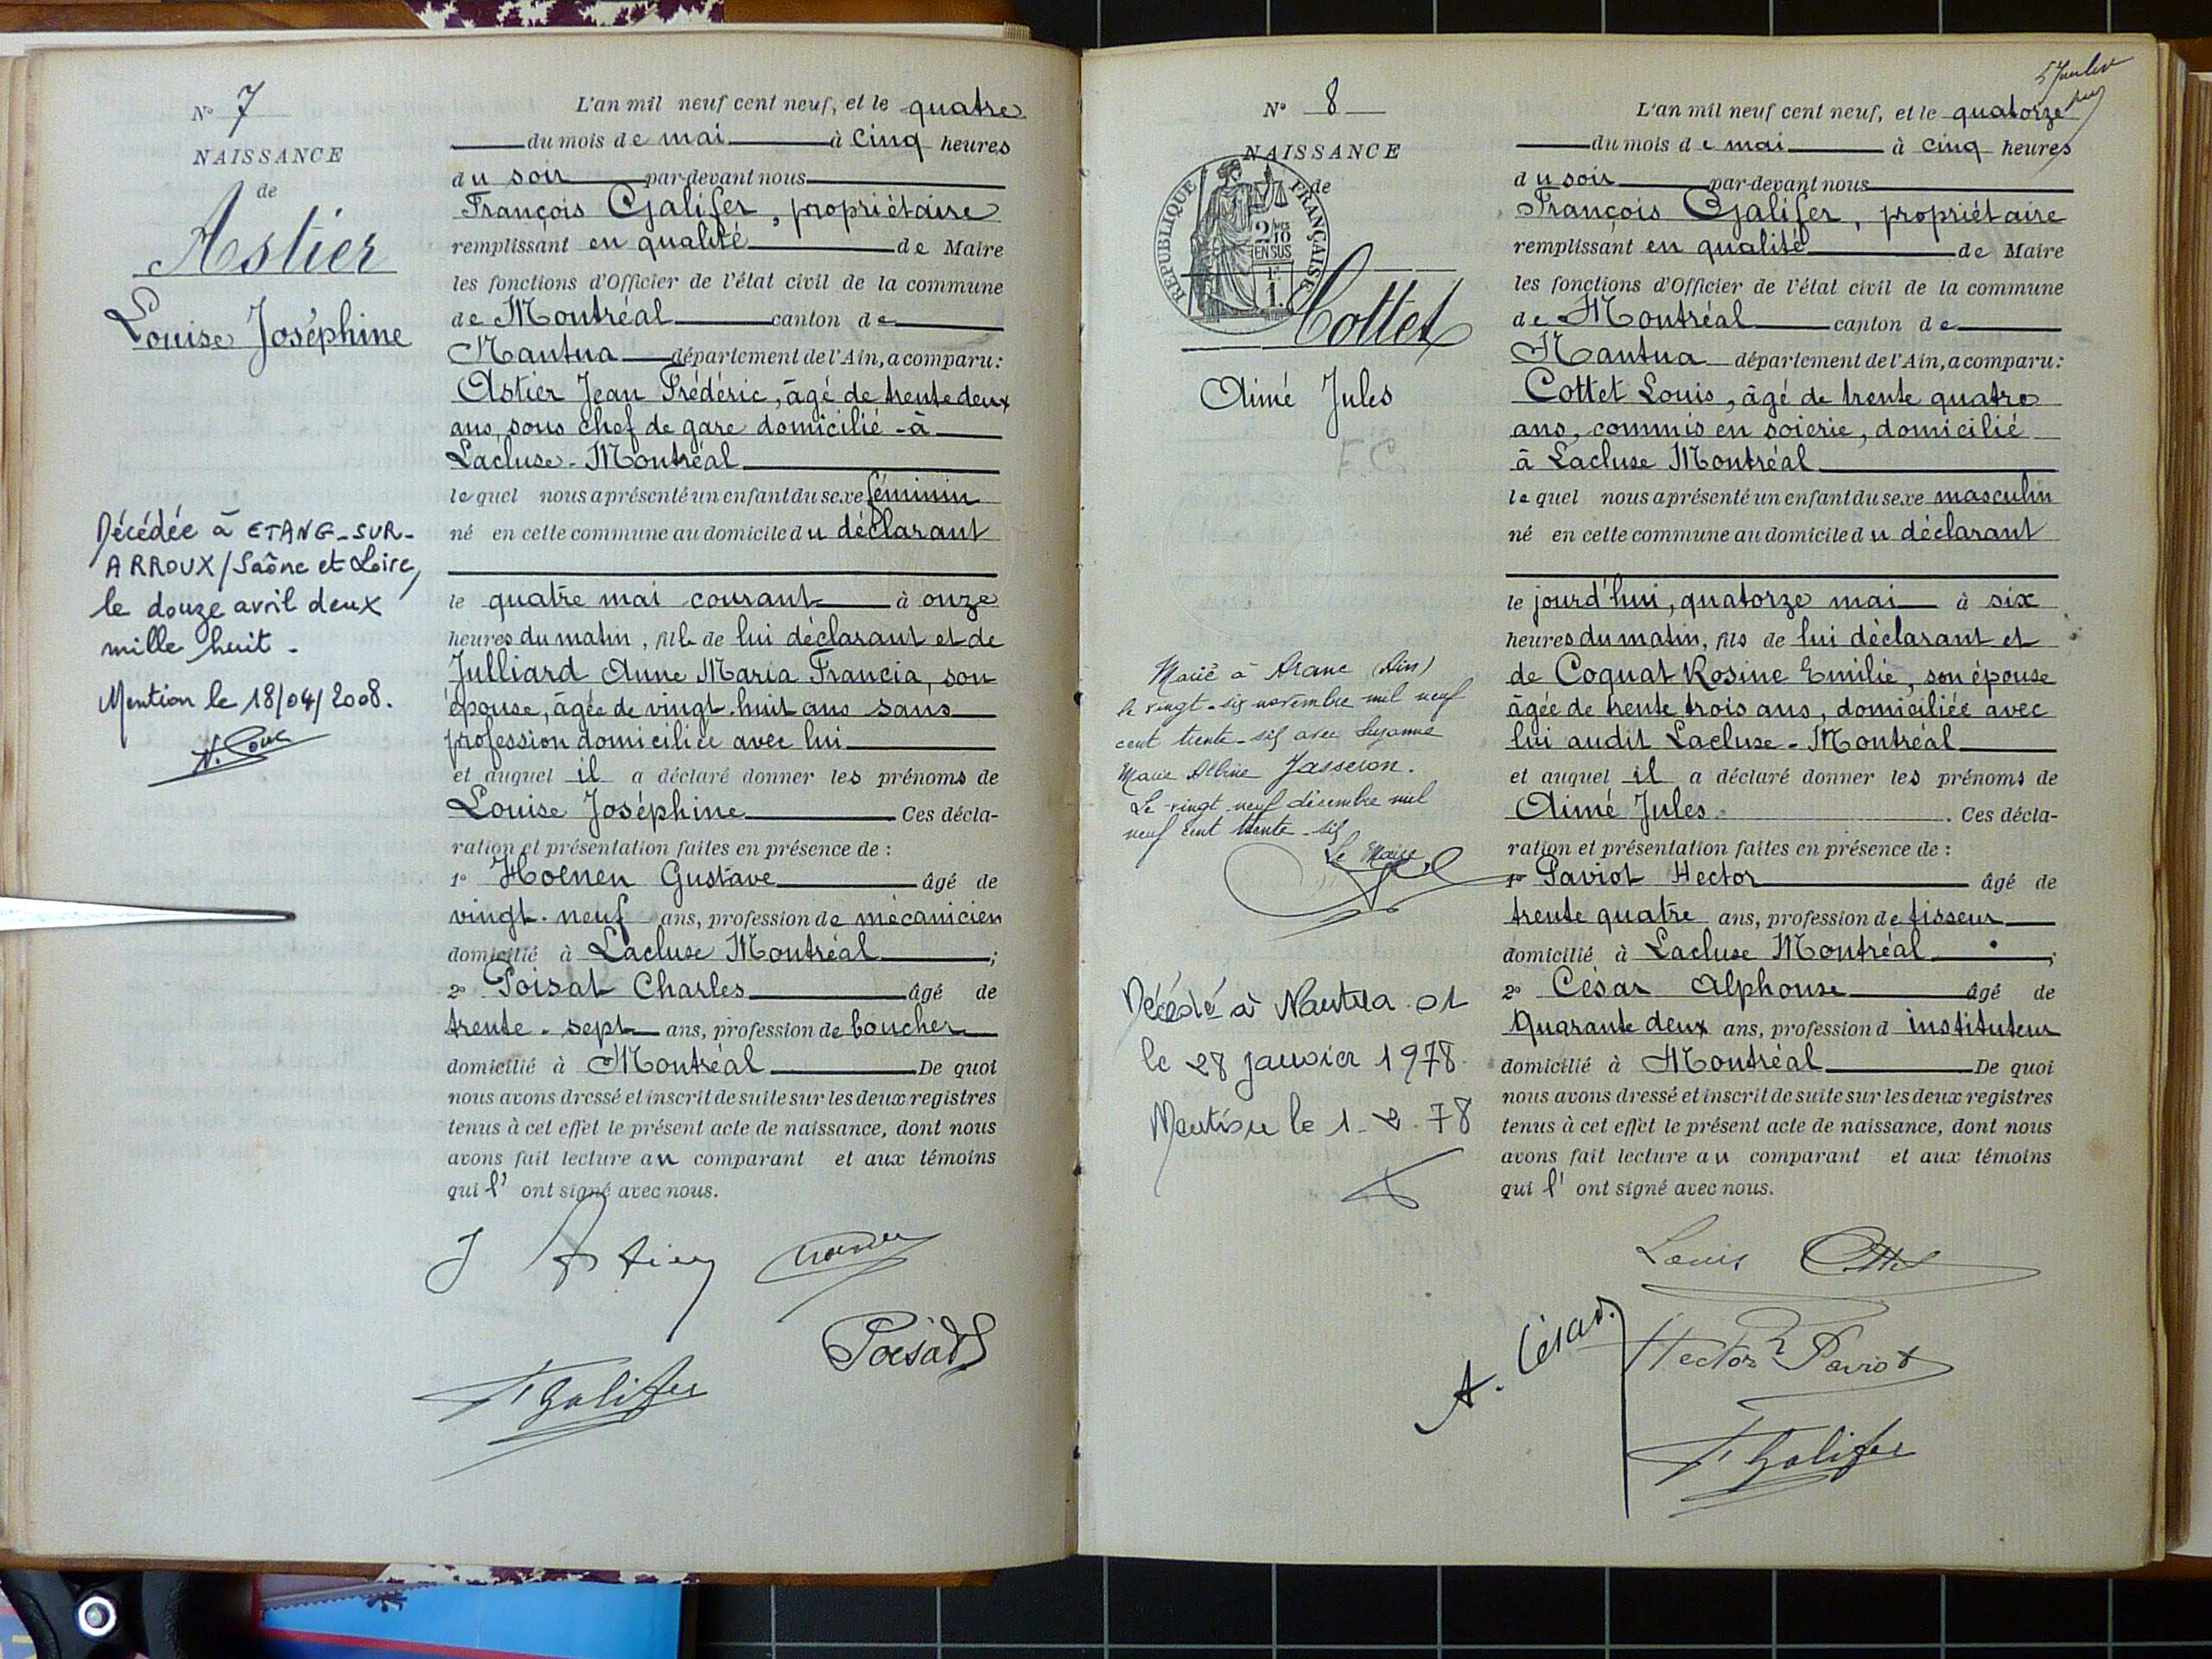 N° 7
NAISSANCE
de
Astier
Louise Joséphine
Décédée à ETANG-SUR-
ARROUX/Saône et Loire,
le douze avril deux
mille huit -
Mention le 18/04/2008.
L'an mil neuf cent neuf, et le quatre
du mois de mai à cinq heures
du soir par-devant nous
François Galifer, propriétaire
remplissant en qualité de Maire
les fonctions d'Officier de l'état civil de la commune
de Montréal canton de
Nantua département de l'Ain, a comparu:
Astier Jean Frédéric, âgé de trente deux
ans, sous chef de gare domicilié à
Lacluse-Montréal
lequel nous a présenté un enfant du sexe féminin
né en cette commune au domicile du déclarant
le quatre mai courant à onze
heures du matin, fille de lui déclarant et de
Julliard Anne Maria Francia, son
épouse, âgée de vingt-huit ans sans
profession domiciliée avec lui
et auquel il a déclaré donner les prénoms de
Louise Joséphine Ces décla-
ration et présentation faites en présence de :
1° Hoenen Gustave âgé de
vingt-neuf ans, profession de mécanicien
domicilié à Lacluse Montréal ;
2° Poisat Charles âgé de
trente-sept ans, profession de boucher
domicilié à Montréal De quoi
nous avons dressé et inscrit de suite sur les deux registres
tenus à cet effet le présent acte de naissance, dont nous
avons fait lecture au comparant et aux témoins
qui l' ont signé avec nous.
J Astier
Poisat
F Galifer
N° 8
NAISSANCE
de
RÉPUBLIQUE FRANÇAISE
2/10
EN SUS
1.
Cottet
Aimé Jules
F.C.
Marié à Aranc (Ain)
le vingt-six novembre mil neuf
cent trente-six avec Suzanne
Marie Jasseron.
Le vingt neuf décembre mil
neuf cent trente-six
Le Maire
Décédé à Nantua 01
le 28 janvier 1978.
Mention le 1-2-78
L'an mil neuf cent neuf, et le quatorze
du mois de mai à cinq heures
du soir par-devant nous
François Galifer, propriétaire
remplissant en qualité de Maire
les fonctions d'Officier de l'état civil de la commune
de Montréal canton de
Nantua département de l'Ain, a comparu:
Cottet Louis, âgé de trente quatre
ans, commis en soierie, domicilié
à Lacluse Montréal
lequel nous a présenté un enfant du sexe masculin
né en cette commune au domicile du déclarant
le jourd'hui, quatorze mai à six
heures du matin, fils de lui déclarant et
de Coquat Rosine Emilie, son épouse
âgée de trente trois ans, domiciliée avec
lui audit Lacluse-Montréal
et auquel il a déclaré donner les prénoms de
Aimé Jules. Ces décla-
ration et présentation faites en présence de :
1° Paviot Hector âgé de
trente quatre ans, profession de tisseur
domicilié à Lacluse Montréal ;
2° César Alphonse âgé de
Quarante deux ans, profession d instituteur
domicilié à Montréal De quoi
nous avons dressé et inscrit de suite sur les deux registres
tenus à cet effet le présent acte de naissance, dont nous
avons fait lecture au comparant et aux témoins
qui l' ont signé avec nous.
Louis Cottet
A. César.
Hector Paviot
F Galifer